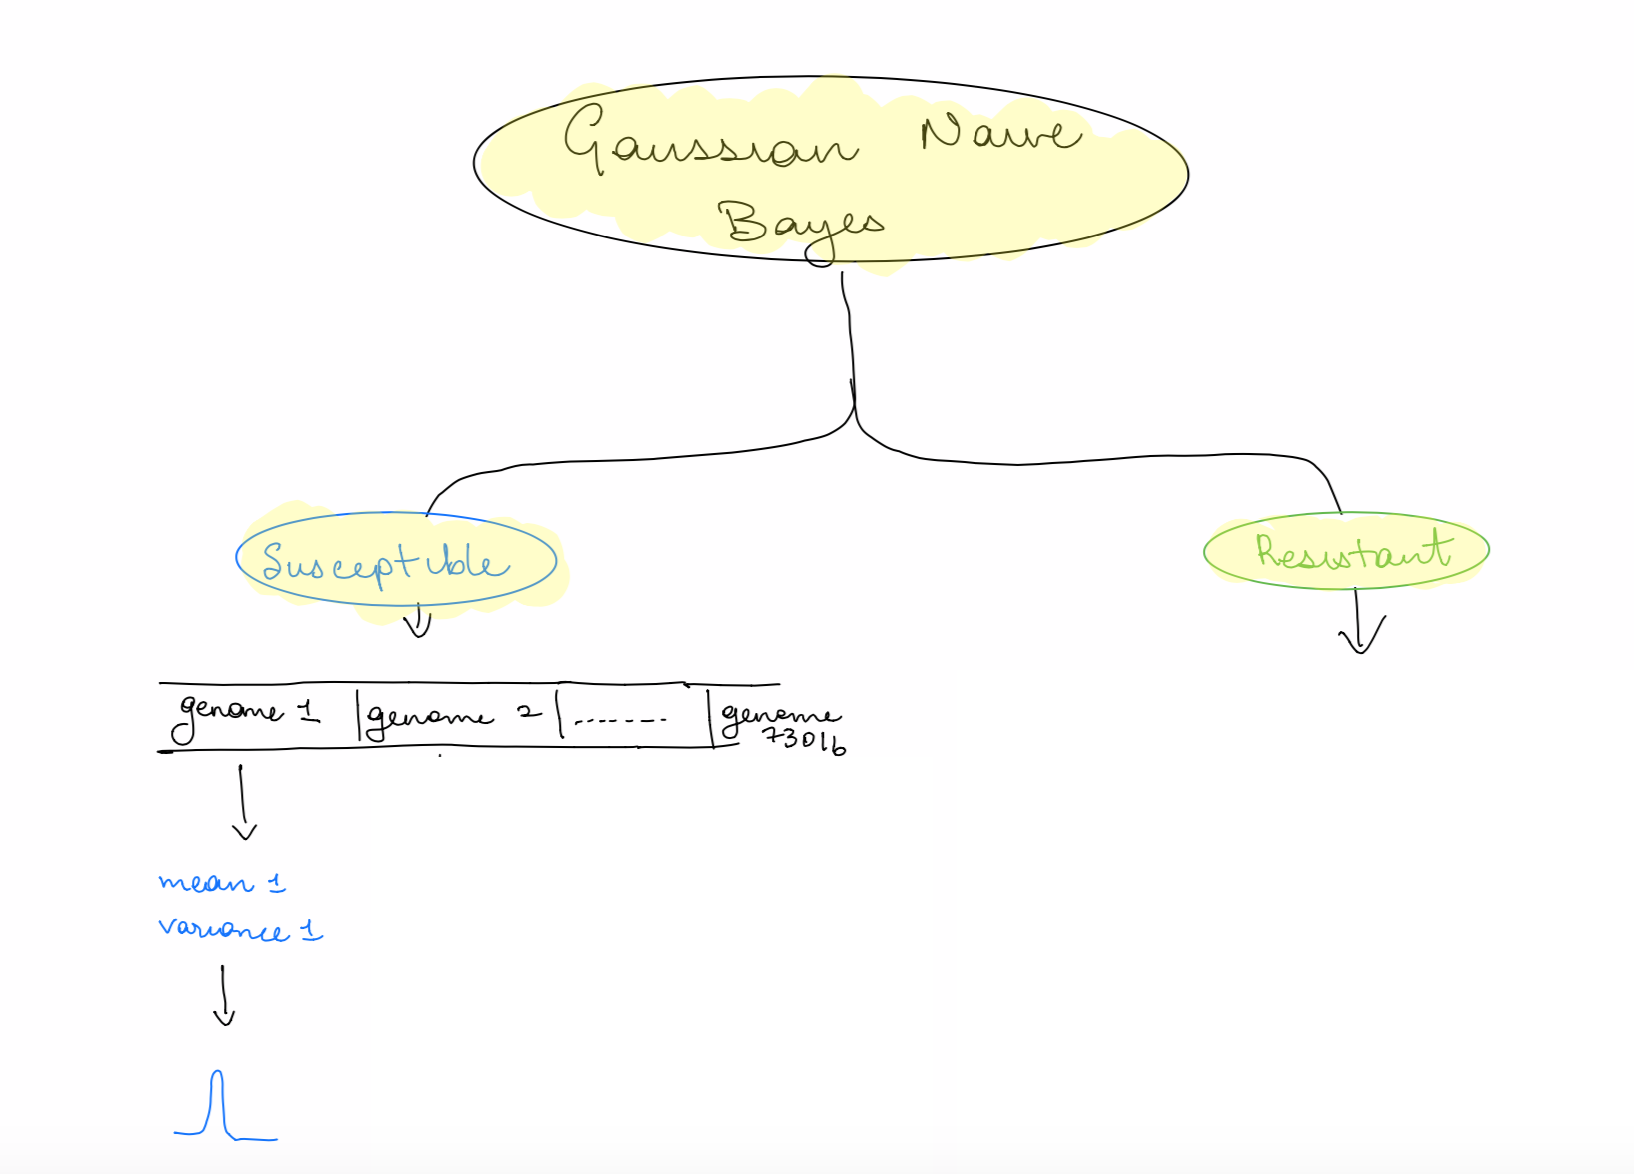 Gaussian Naive
Bayes
Susceptible
Resistant
genome 1 | genome 2 | ------- | genome
73016
mean 1
variance 1